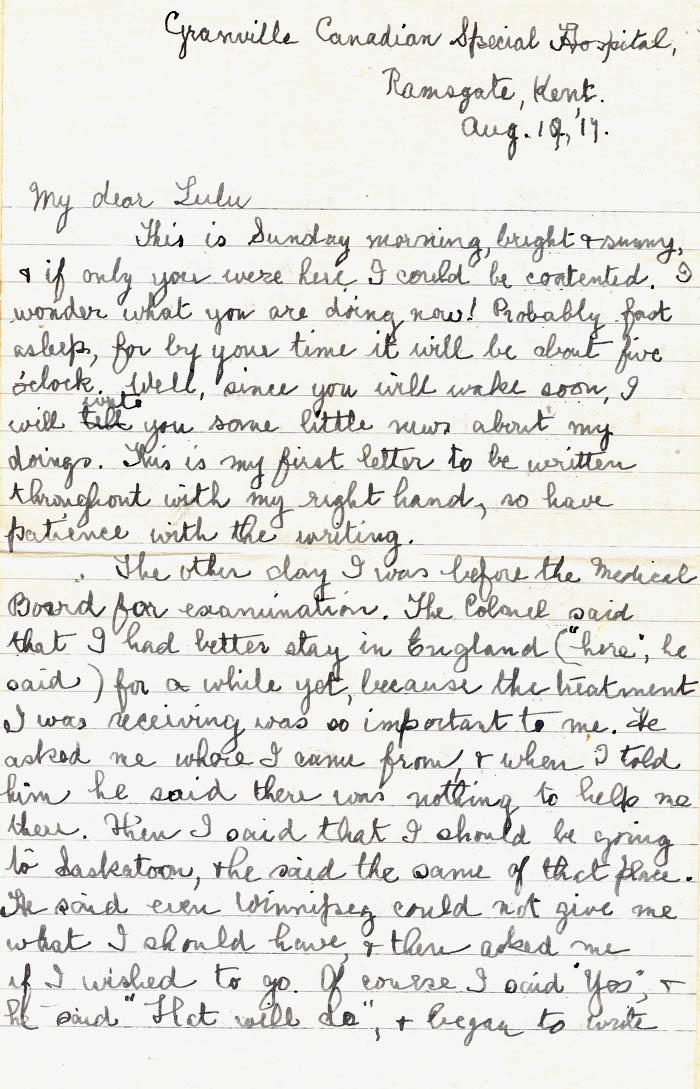 Granville Canadian Special Hospital,
Ramsgate, Kent.
Aug. 19, '17.
My dear Lulu
This is Sunday morning, bright & sunny,
& if only you were here I could be contented. I
wonder what you are doing now! Probably fast
asleep, for by your time it will be about five
o'clock. Well, since you will wake soon, I
will tell write you some little news about my
doings. This is my first letter to be written
throughout with my right hand, so have
patience with the writing.
The other day I was before the Medical
Board for examination. The Colonel said
that I had better stay in England ("here", he
said) for a while yet, because the treatment
I was receiving was so important to me. He
asked me where I came from, & when I told
him he said there was nothing to help me
there. Then I said that I should be going
to Saskatoon, & he said the same of that place.
He said even Winnipeg could not give me
what I should have, & then asked me
if I wished to go. Of course I said "Yes", &
he said "That will do", & began to write